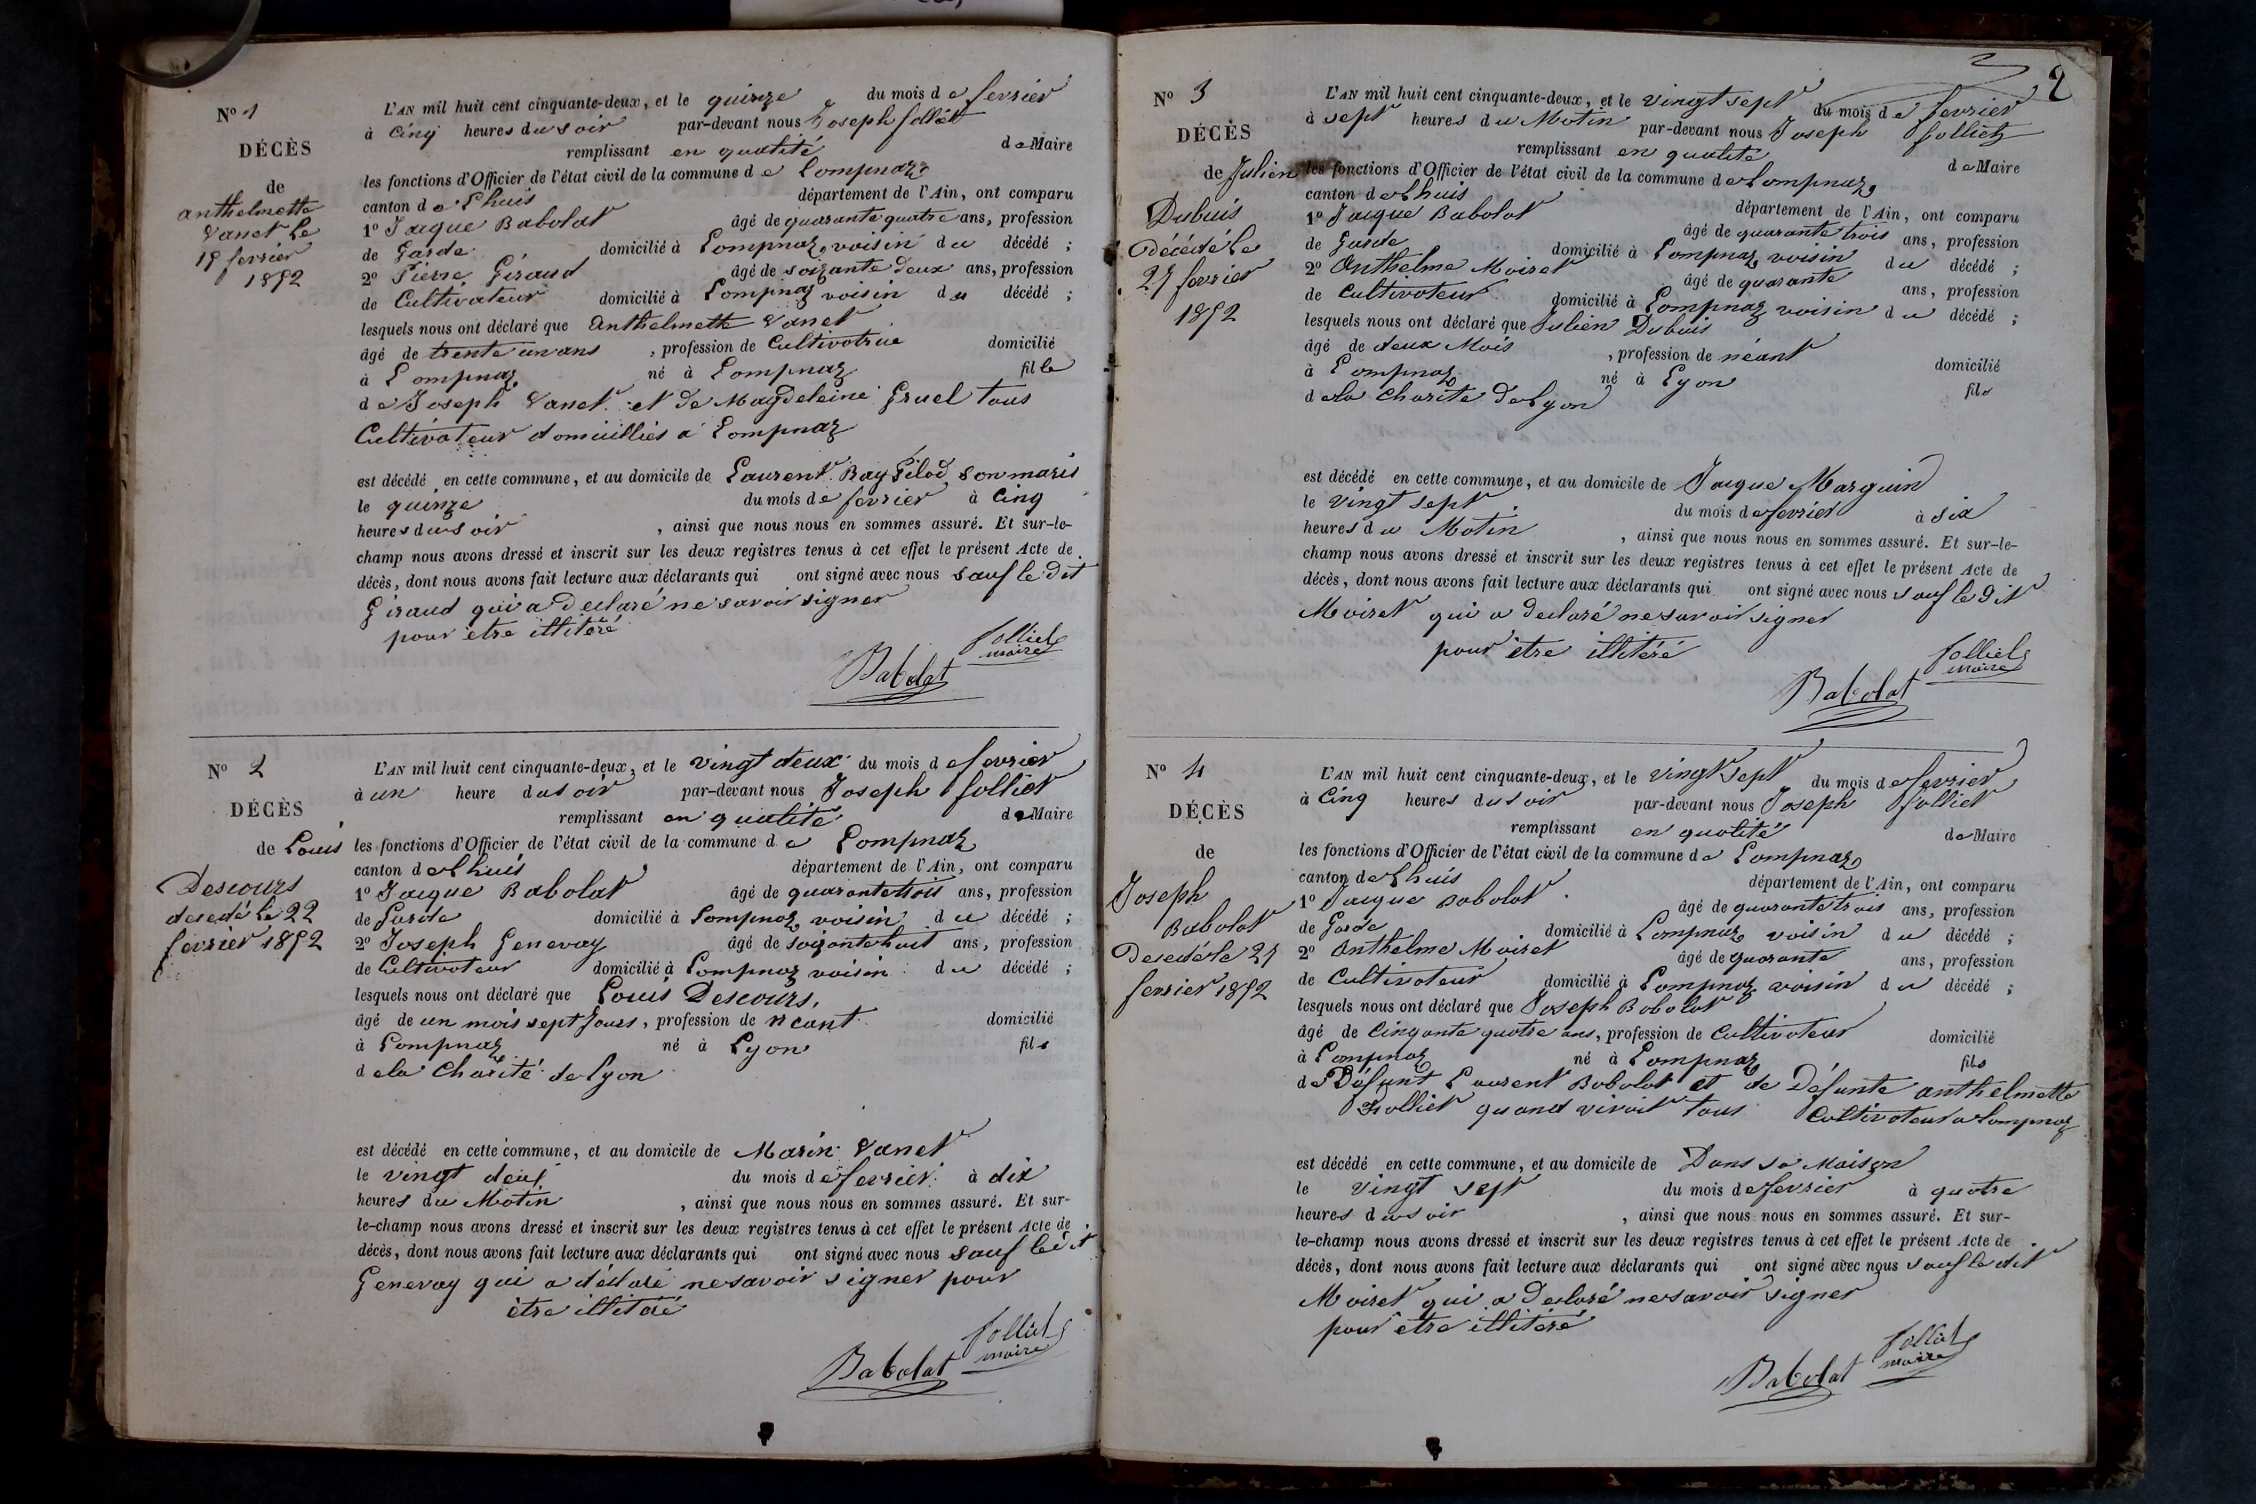 N° 1
DÉCÈS
de
anthelmette
Vanet le
15 fevrier
1852
L'AN mil huit cent cinquante-deux, et le quinze du mois de fevrier
à cinq heures du soir par-devant nous Joseph folliet
remplissant en qualité de Maire
les fonctions d'Officier de l'état civil de la commune de Lompnaz
canton de Lhuis département de l'Ain, ont comparu
1° Jacque Babolat âgé de quarante quatre ans, profession
de Garde domicilié à Lompnaz voisin du décédé ;
2° Pierre Giraud âgé de soizante deux ans, profession
de Cultivateur domicilié à Lompnaz voisin du décédé ;
lesquels nous ont déclaré que Anthelmette Vanet
âgé de trente un ans , profession de Cultivatrice domicilié
à Lompnaz né à Lompnaz fille
de Joseph Vanet et de Magdeleine Gruel tous
Cultivateur domicilliés à Lompnaz
est décédé en cette commune, et au domicile de Laurent Ray Pilod son maris
le quinze du mois de fevrier à cinq
heures du soir , ainsi que nous nous en sommes assuré. Et sur-le-
champ nous avons dressé et inscrit sur les deux registres tenus à cet effet le présent Acte de
décès, dont nous avons fait lecture aux déclarants qui ont signé avec nous sauf le dit
Giraud qui a declaré ne savoir signer
pour être illitéré
folliet
maire
Babolat
N° 2
DÉCÈS
de Louis
Descours
decedé le 22
fevrier 1852
L'AN mil huit cent cinquante-deux, et le vingt deux du mois de fevrier
à un heure du soir par-devant nous Joseph folliet
remplissant en qualité de Maire
les fonctions d'Officier de l'état civil de la commune de Lompnaz
canton de Lhuis département de l'Ain, ont comparu
1° Jacque Babolat âgé de quarante trois ans, profession
de Garde domicilié à Lompnaz voisin du décédé ;
2° Joseph Genevay âgé de soizante huit ans, profession
de Cultivateur domicilié à Lompnaz voisin du décédé ;
lesquels nous ont déclaré que Louis Descours,
âgé de un mois sept jours, profession de néant domicilié
à Lompnaz né à Lyon fils
de la Charité de lyon
est décédé en cette commune, et au domicile de Marin Vanet
le vingt deux du mois de fevrier à dix
heures du Matin , ainsi que nous nous en sommes assuré. Et sur-
le-champ nous avons dressé et inscrit sur les deux registres tenus à cet effet le présent Acte de
décès, dont nous avons fait lecture aux déclarants qui ont signé avec nous sauf
Genevay qui a déclaré ne savoir signer pour
être illitéré
folliet
maire
Babolat
2
N° 3
DÉCÈS
de Julien
Dubuis
Décédé le
27 fevrier
1852
L'AN mil huit cent cinquante-deux, et le vingt sept du mois de fevrier
à sept heures du Matin par-devant nous Joseph folliet
remplissant en qualité de Maire
les fonctions d'Officier de l'état civil de la commune de Lompnaz
canton de Lhuis département de l'Ain, ont comparu
1° Jacque Babolat âgé de quarante trois ans, profession
de Garde domicilié à Lompnaz voisin du décédé ;
2° Anthelme Moiret âgé de quarante ans, profession
de Cultivateur domicilié à Lompnaz voisin du décédé ;
lesquels nous ont déclaré que Julien Dubuis
âgé de deux Mois , profession de néant domicilié
à Lompnaz né à Lyon fils
de la Charité de Lyon
est décédé en cette commune, et au domicile de Jacque Marguin
le vingt sept du mois de fevrier à six
heures du Matin , ainsi que nous nous en sommes assuré. Et sur-le-
champ nous avons dressé et inscrit sur les deux registres tenus à cet effet le présent Acte de
décès, dont nous avons fait lecture aux déclarants qui ont signé avec nous sauf le dit
Moiret qui a declaré ne savoir signer
pour être illitéré
folliet
maire
Babolat
N° 4
DÉCÈS
de
Joseph
Babolat
Decedé le 27
fevrier 1852
L'AN mil huit cent cinquante-deux, et le vingt sept du mois de fevrier
à cinq heures du soir par-devant nous Joseph folliet
remplissant en qualité de Maire
les fonctions d'Officier de l'état civil de la commune de Lompnaz
canton de Lhuis département de l'Ain, ont comparu
1° Jacque Babolat âgé de quarante trois ans, profession
de Garde domicilié à Lompnaz voisin du décédé ;
2° Anthelme Moiret âgé de quarante ans, profession
de Cultivateur domicilié à Lompnaz voisin du décédé ;
lesquels nous ont déclaré que Joseph Babolat
âgé de Cinqante quatre ans, profession de Cultivateur domicilié
à Lompnaz né à Lompnaz fils
de Défunt Laurent Babolat et de Défunte anthelmette
Trolliet quand vivait tous Cultivateur a Lompnaz
est décédé en cette commune, et au domicile de Dans sa Maison
le vingt sept du mois de fevrier à quatre
heures du soir , ainsi que nous nous en sommes assuré. Et sur-
le-champ nous avons dressé et inscrit sur les deux registres tenus à cet effet le présent Acte de
décès, dont nous avons fait lecture aux déclarants qui ont signé avec nous sauf le dit
Moiret qui a declaré ne savoir signer
pour être illitéré
folliet
maire
Babolat